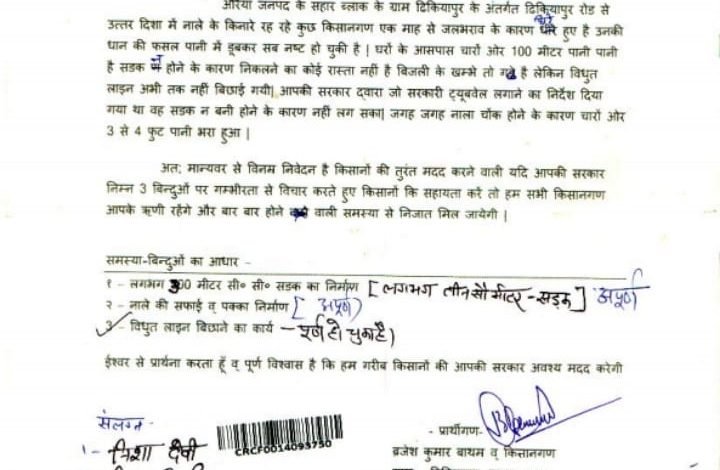 औरैया जनपद के सहार ब्लाक के ग्राम टिकियापुर के अंतर्गत टिकियापुर रोड से
उत्तर दिशा में नाले के किनारे रह रहे कुछ किसानगण एक माह से जलभराव के कारण घिरे हुए है उनकी
धान की फसल पानी में डूबकर सब नष्ट हो चुकी है | घरों के आसपास चारों ओर 100 मीटर पानी पानी
है सडक न होने के कारण निकलने का कोई रास्ता नहीं है बिजली के खम्भे तो गड़े है लेकिन विधुत
लाइन अभी तक नहीं बिछाई गयी| आपकी सरकार द्वारा जो सरकारी ट्यूबवेल लगाने का निर्देश दिया
गया था वह सडक न बनी होने के कारण नहीं लग सका| जगह जगह नाला चोंक होने के कारण चारों ओर
3 से 4 फुट पानी भरा हुआ |
अत: मान्यवर से विनम्र निवेदन है किसानों की तुरंत मदद करने वाली यदि आपकी सरकार
निम्न 3 बिन्दुओं पर गम्भीरता से विचार करते हुए किसानों कि सहायता करें तो हम सभी किसानगण
आपके ऋणी रहेंगे और बार बार होने वाली समस्या से निजात मिल जायेगी |
समस्या-बिन्दुओं का आधार -
१ - लगभग 300 मीटर सी० सी० सडक का निर्माण [लगभग तीन सौ मीटर - सड़क] अपूर्ण
२ - नाले की सफाई व पक्का निर्माण [अपूर्ण)
3 - विधुत लाइन बिछाने का कार्य - पूर्ण हो चुका है)
ईश्वर से प्रार्थना करता हूँ व् पूर्ण विश्वास है कि हम गरीब किसानों की आपकी सरकार अवश्य मदद करेगी
संलग्न -
- प्रार्थीगण-
1 - निशा देवी
CRCF0014093750
ब्रजेश कुमार बाथम व् किसानगण